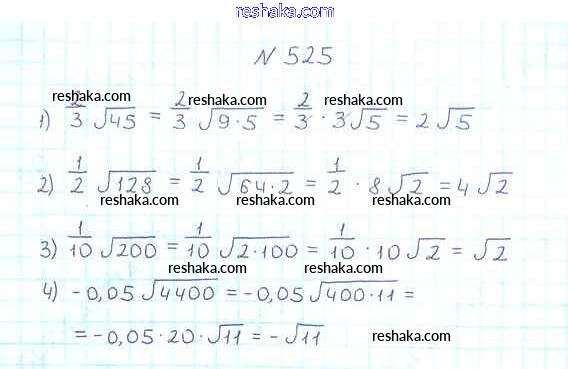 reshaka.com
N 525
reshaka.com reshaka.com reshaka.com
1) 2/3 √45 = 2/3 √9·5 = 2/3 · 3√5 = 2√5
reshaka.com reshaka.com
2) 1/2 √128 = 1/2 √64·2 = 1/2 · 8√2 = 4√2
reshaka.com reshaka.com reshaka.com
3) 1/10 √200 = 1/10 √2·100 = 1/10 · 10√2 = √2
reshaka.com reshaka.com
4) -0,05√4400 = -0,05√400·11 =
= -0,05·20·√11 = -√11
reshaka.com